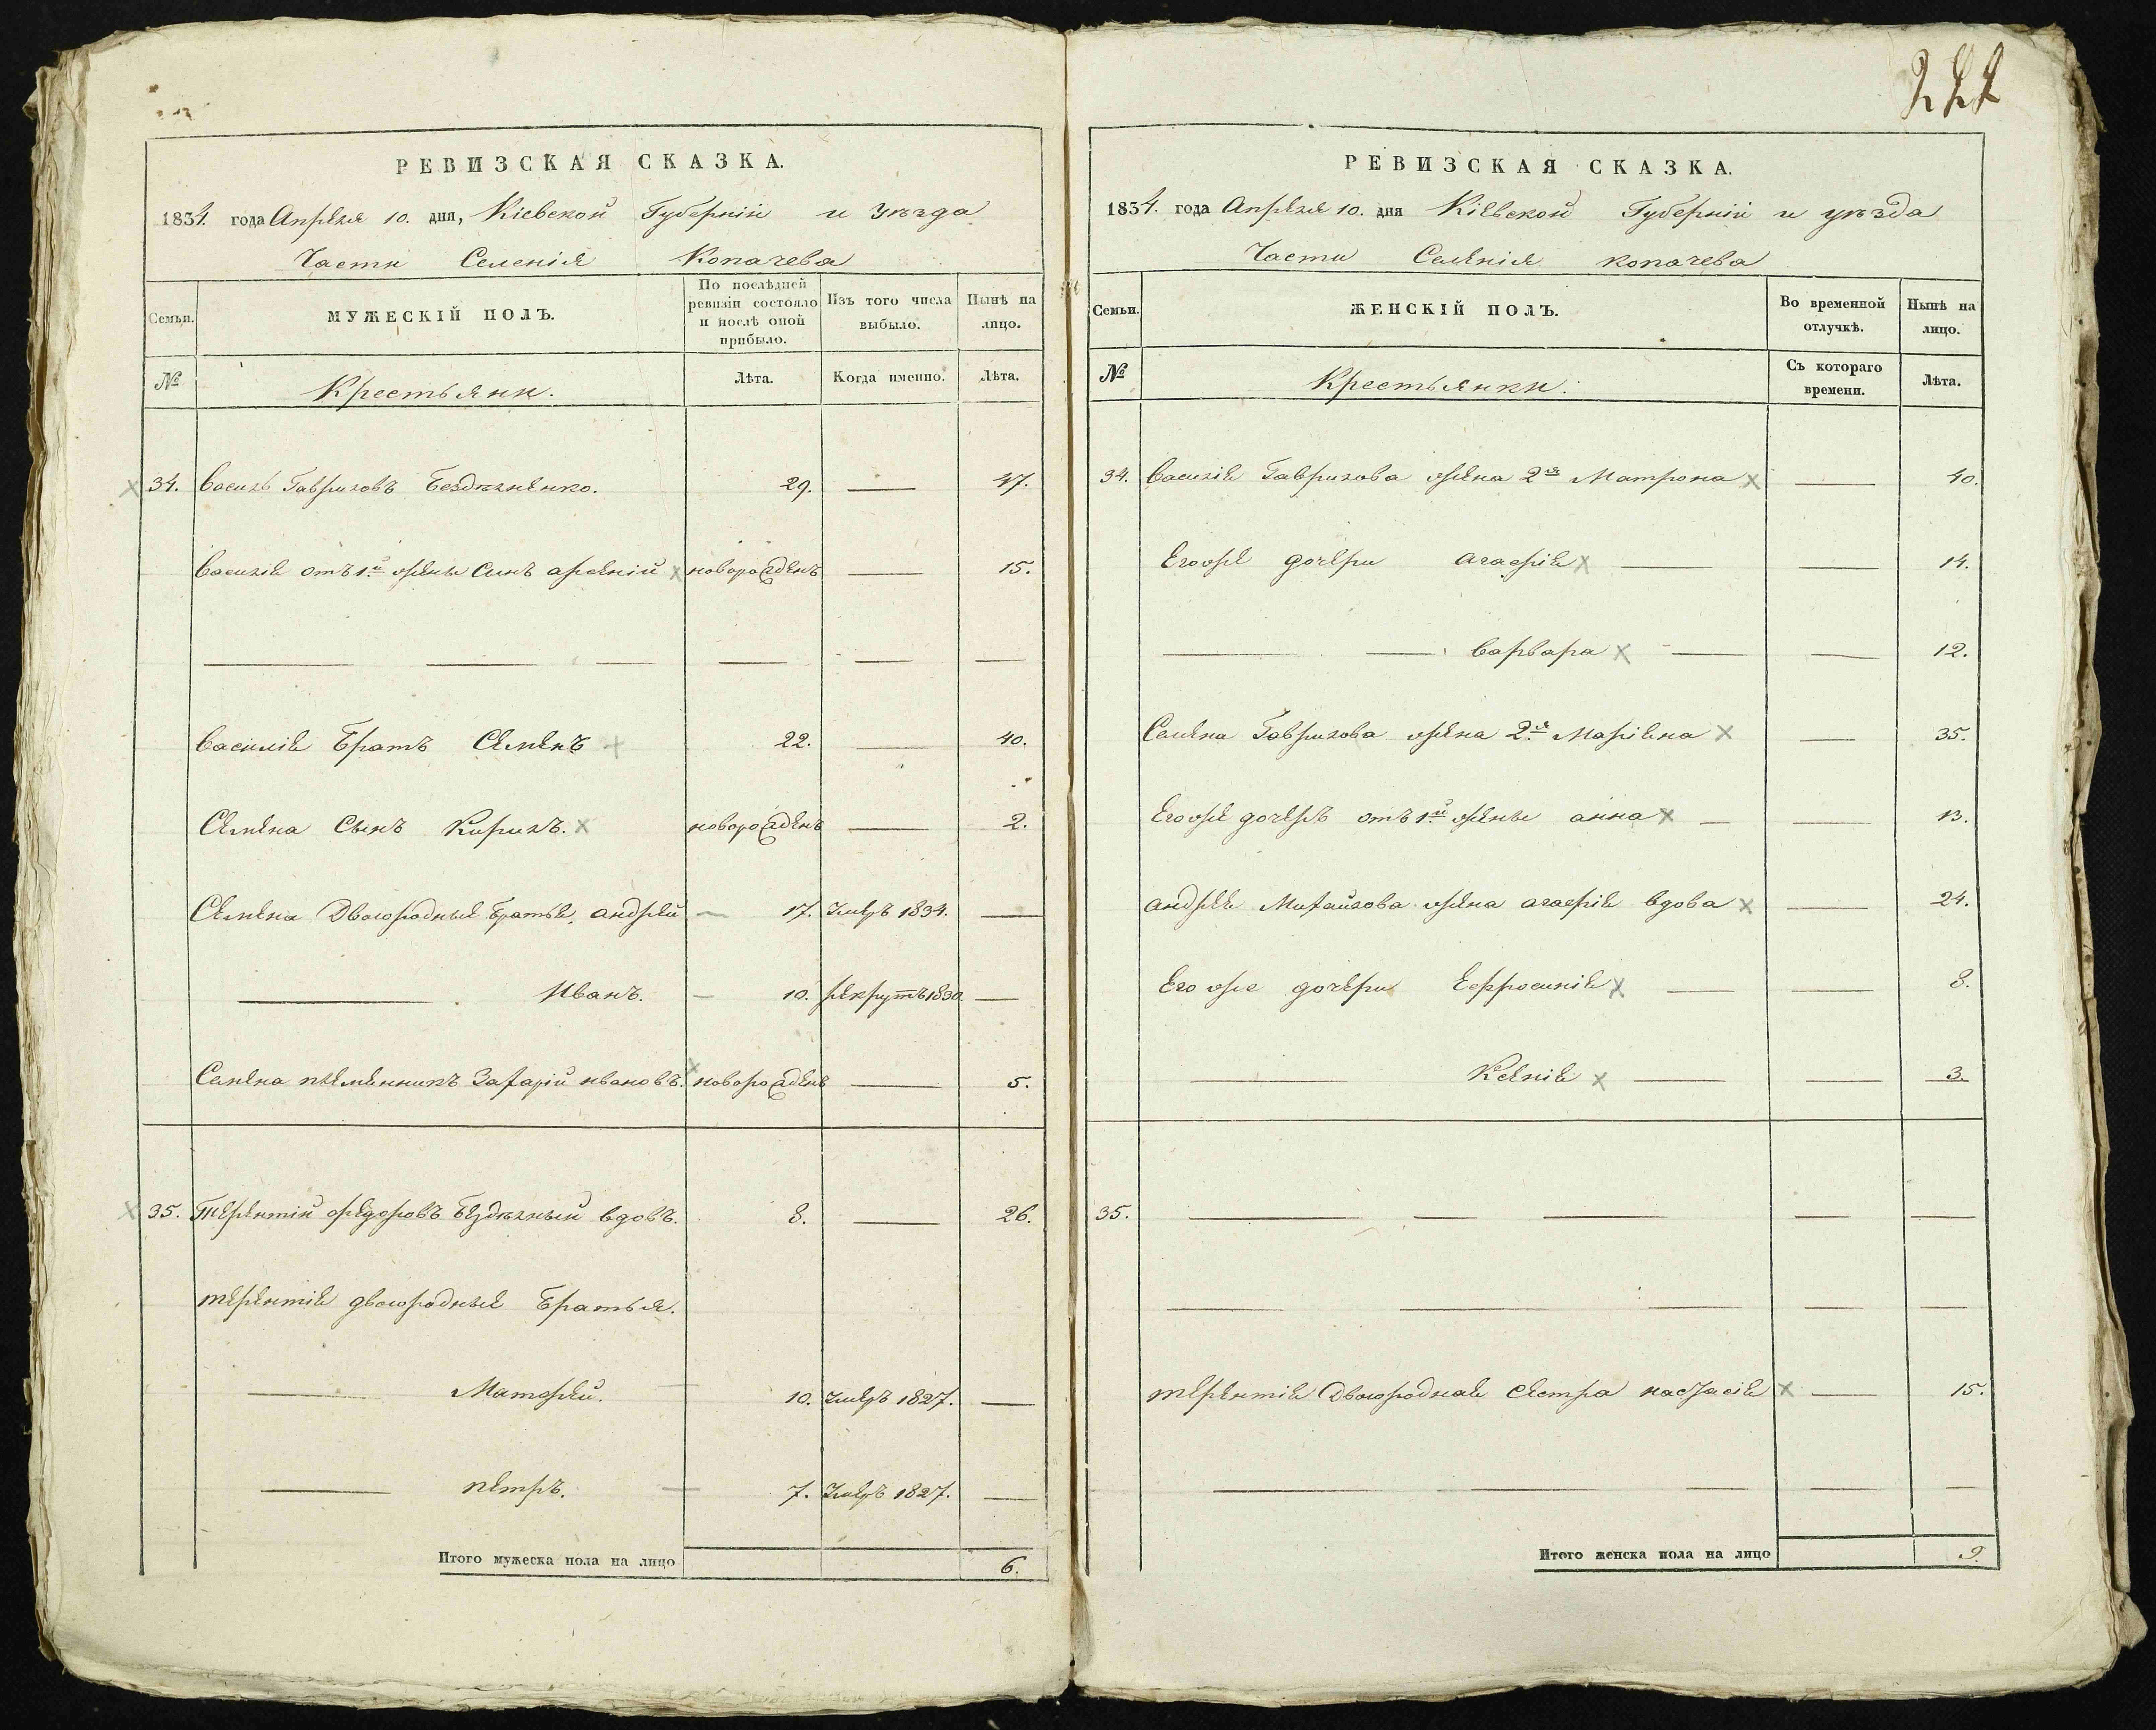 222
РЕВИЗСКАЯ СКАЗКА.
1834. года Апреля 10. дня, Кіевской Губерніи и Уѣзда
Части Селенія Копачева
Семьи.
МУЖЕСКІЙ ПОЛЪ.
По послѣдней ревизіи состояло и послѣ оной прибыло.
Изъ того числа выбыло.
Нынѣ на лицо.
№
Крестьяни.
Лѣта.
Когда именно.
Лѣта.
34. Василь Гавриловъ Бездѣлненко. 29. — 47.
Василіе отъ 1й жены Сынъ арсеній новорожденъ — 15.
Василіе Братъ Семенъ 22. — 40.
Семена Сынъ Кирилъ. новорожденъ — 2.
Семена Двоюродные Братье, андрей — 17. Умеръ 1834. —
— Иванъ. — 10. рекрутъ 1830. —
Семена племенникъ Захарій ивановъ. новорожденъ — 5.
35. Терентій федоровъ Бездѣлный вдовъ. 8. — 26.
терентіе двоюродные Братья.
— Матфей. 10. Умеръ 1827. —
— петръ. 7. Умеръ 1827. —
Итого мужеска пола на лицо 6.
РЕВИЗСКАЯ СКАЗКА.
1834. года Апреля 10. дня Кіевской Губерніи и уѣзда
Части Селенія копачева
Семьи.
ЖЕНСКІЙ ПОЛЪ.
Во временной отлучкѣ.
Нынѣ на лицо.
№
Крестьянки.
Съ котораго времени.
Лѣта.
34. Василіе Гаврилова жена 2я Матрона — 40.
Егоже дочери агафіе — — 14.
— — Варвара — — 12.
Семена Гаврилова жена 2я Маріена — 35.
Егоже дочеръ отъ 1й жены анна — — 13.
андрее Михайлова жена агафіе вдова — 24.
Егоже дочери Ефросиніе — — 8.
— Ксеніе — — 3.
35. — — — — —
терентіе Двоюроднае сестра настасіе — 15.
Итого женска пола на лицо 9.